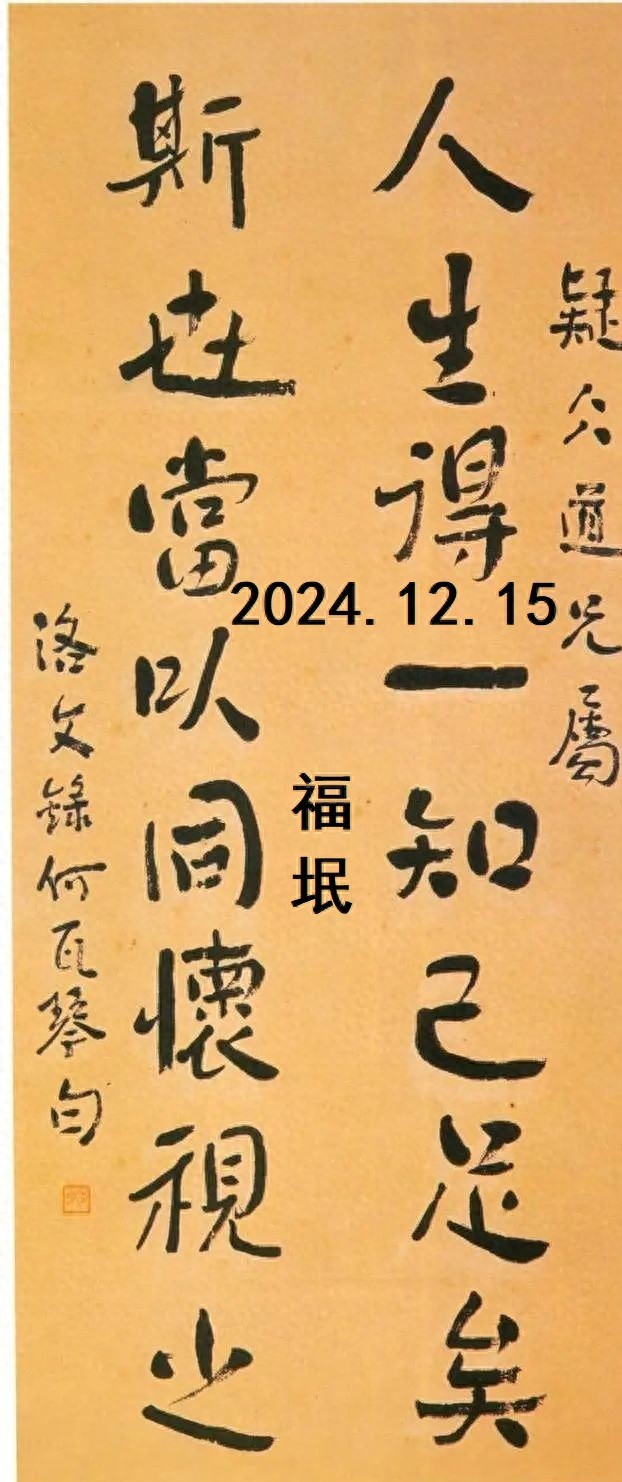 疑仌道兄屬
人生得一知己足矣
斯世當以同懷視之
洛文錄何瓦琴句
2024.12.15
福垊